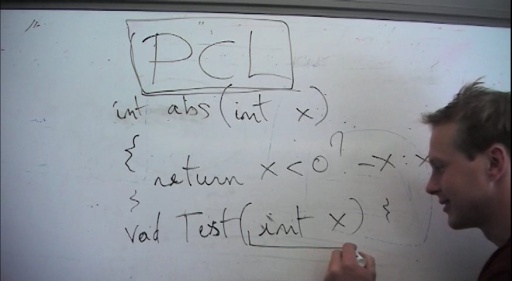 PCL
int abs(int x)
{
return x<0? -x:x
}
void Test(int x) {